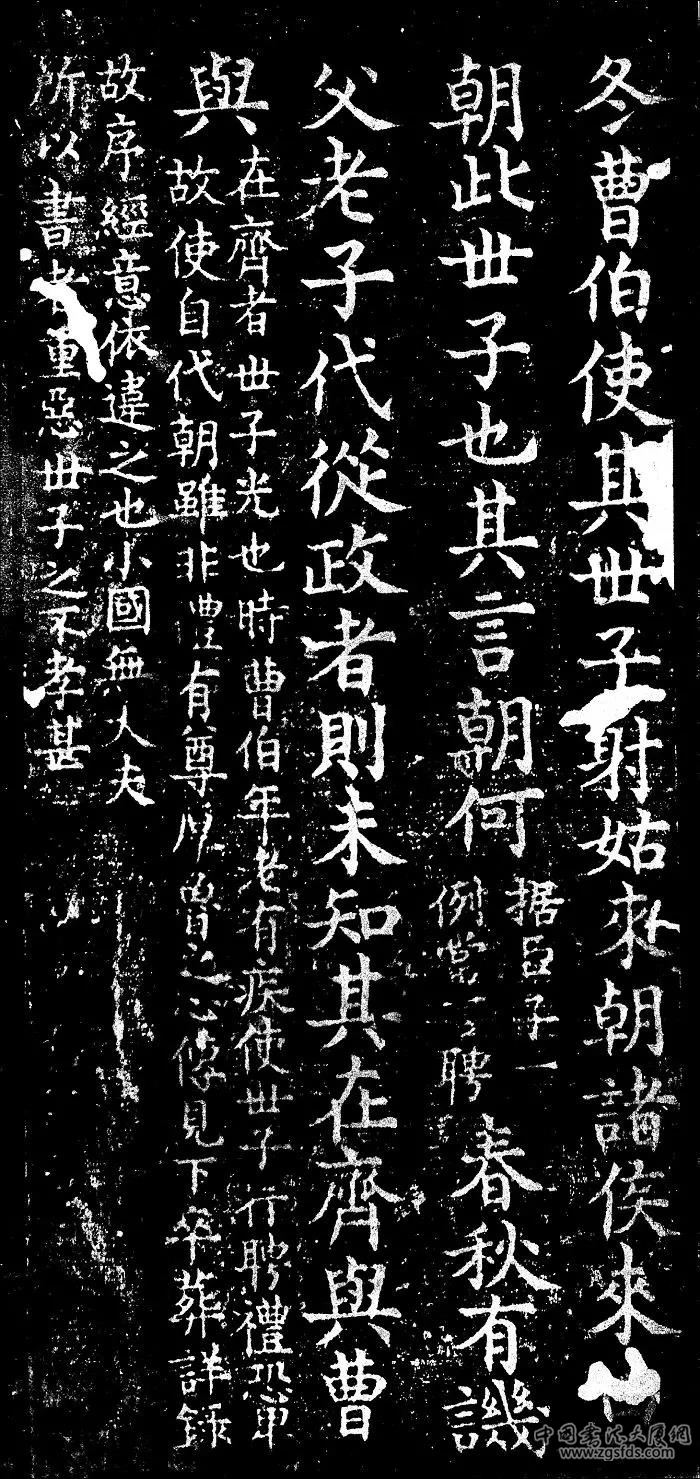 冬曹伯使其世子射姑來朝諸侯來
朝此世子也其言朝何
据臣子一
例當言聘
春秋有譏
父老子代從政者則未知其在齊與曹
與
在齊者世子光也時曹伯年老有疾使世子行聘禮恐卑
故使自代朝雖非禮有尊厚魯之心傳見下卒葬詳錄
故序經意依違之也小國無大夫
所以書者重惡世子之不孝甚
中国书法大展网
www.zgsfds.com